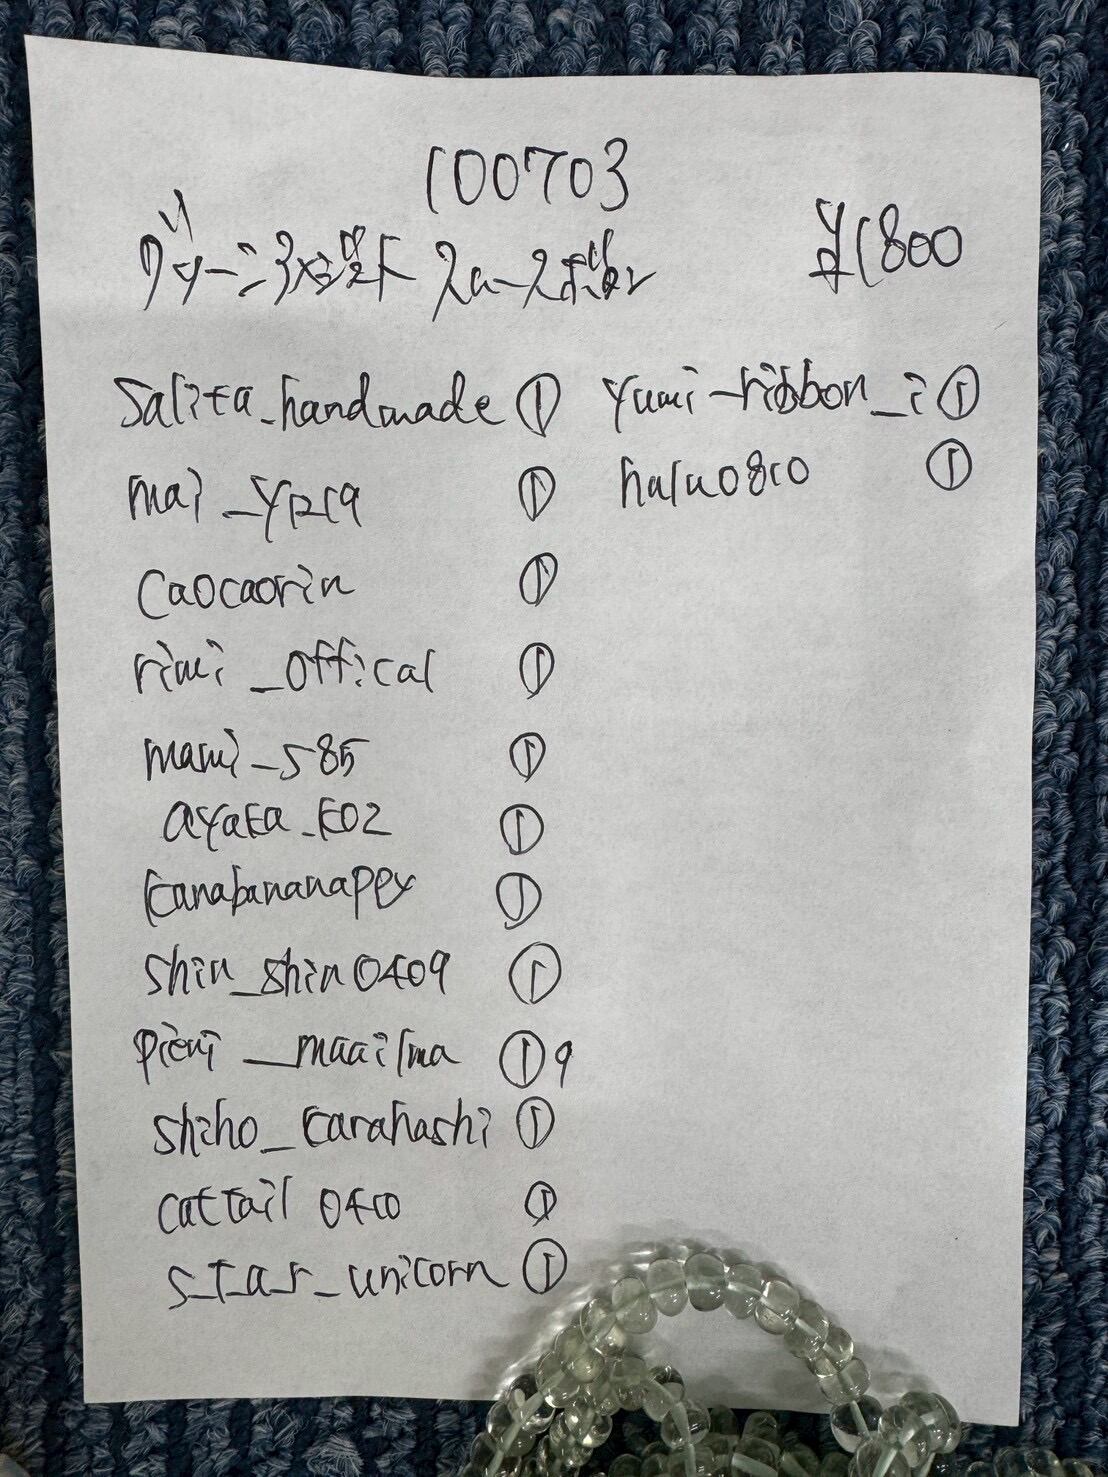 100703
¥1800
salita_handmade ①
mai_yp219 ①
caocaorin ①
rimi_offical ①
mami_s85 ①
ayaka_k02 ①
kanabananappy ①
shin_shin0409 ①
pieni_maailma ① 9
shiho_karahashi ①
cattail 0410 ①
s_t_a_r_unicorn ①
yumi-ribbon_i ①
halu0810 ①